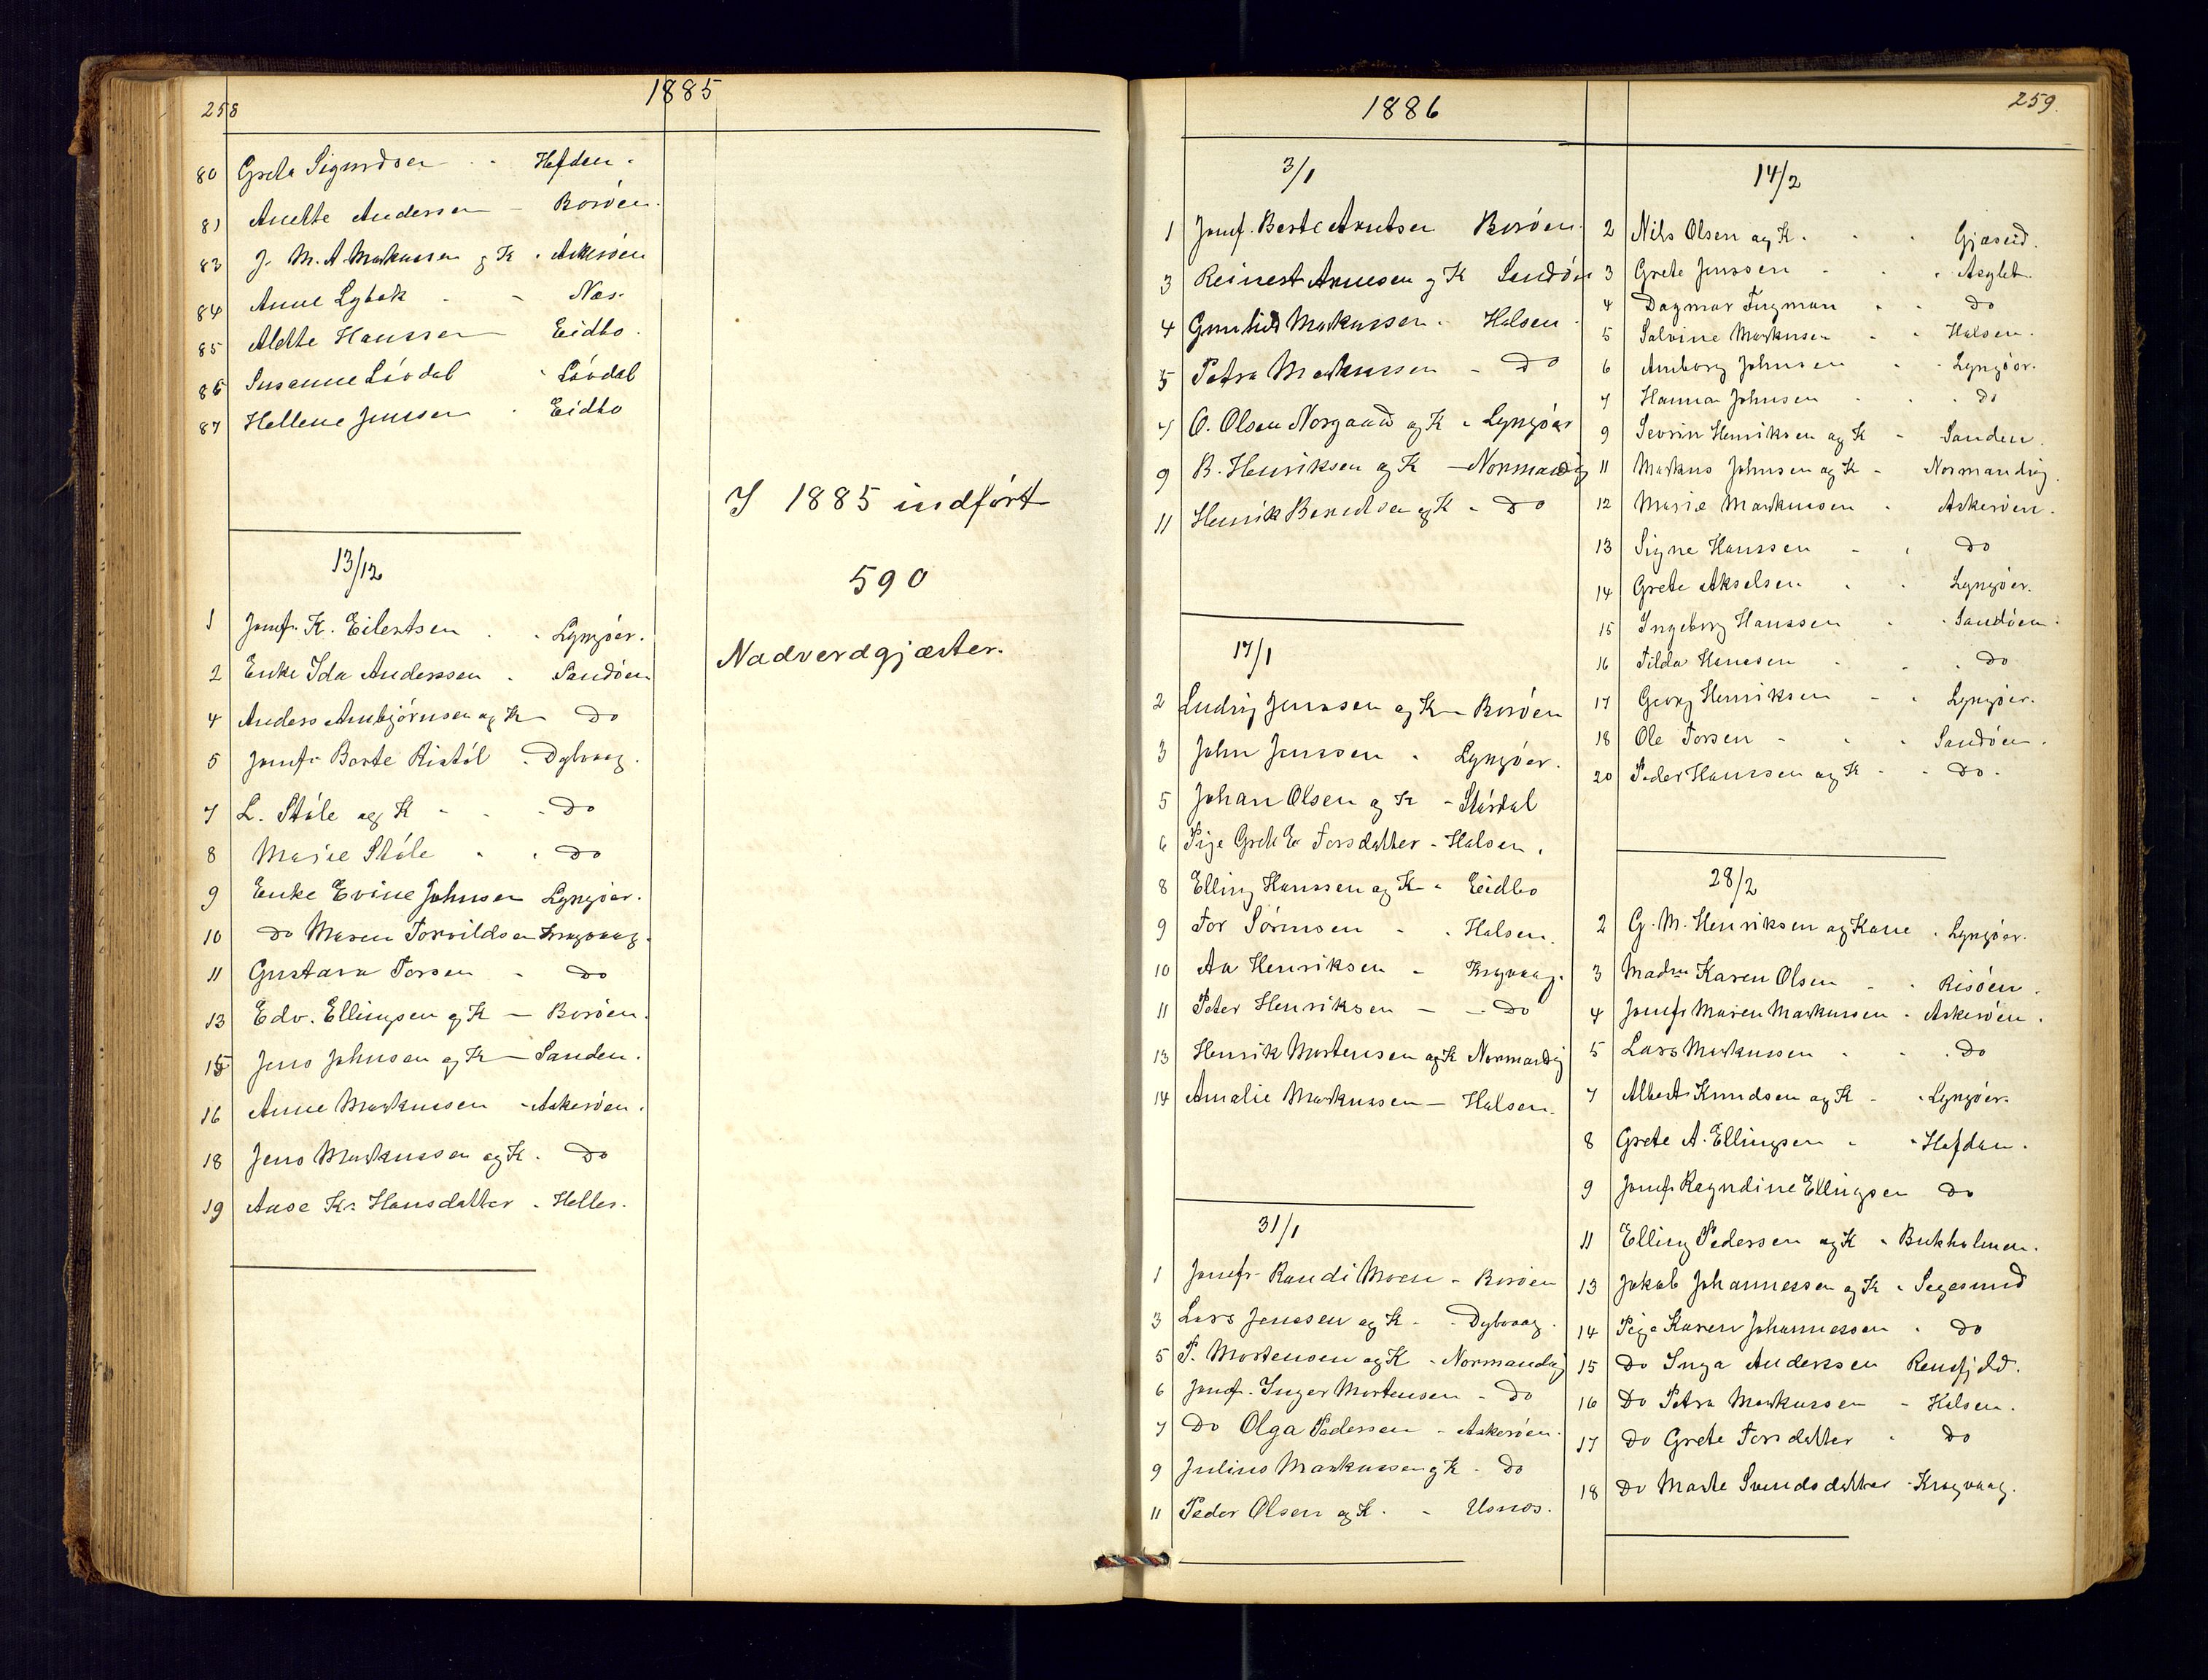 258
1885
80 Grete Sigurdsen - - Hafden.
81 Anette Andersen - Borøen.
83 J. M. A Markussen og K. Askerøen
84 Anne Lybæk - - Næs.
85 Alette Hanssen Eidbo.
86 Susanne Løvdal - Løvdal
87 Hellene Jenssen - Eidbo
13/12
1 Jomfr. K. Eilertsen - - Lyngøer.
2 Enke Ida Anderssen - Sandøen
4 Anders Arnbjørnsen og K Do
5 Jomfr Berte Ristøl - Dybvaag.
7 L. Støle og K - - Do
8 Marie Støle - - Do
9 Enke Evine Johnsen Lyngøer.
10 Do Maren Torvildsen Krogvaag.
11 Gustava Torsen - Do
13 Edv. Ellingsen og K - Borøen.
15 Jens Johnsen og K - Sanden.
16 Anne Markussen - Askerøen.
18 Jens Markussen og K. Do
19 Aase Kr. Hansdatter - Helles.
I 1885 indført
590
Nadverdgjæster.
259.
1886
3/1
1 Jomf. Berte Arntsen Borøen.
3 Reinert Arnesen og K Sandøen
4 Gunhild Markussen - Halsen.
5 Petra Markussen - Do
7 O. Olsen Norgaard og K - Lyngøer
9 B. Henriksen og K - Normandvig
11 Henrik og K - Do
17/1
2 Ludvig Jenssen og K - Borøen
3 John Jenssen - Lyngøer.
5 Johan Olsen og K - Størdal
6 Pige Grete Torsdatter - Halsen.
8 Elling Hanssen og K - Eidbo
9 Tor Sørensen - - Halsen.
10 Aa Henriksen - Krogvaag.
11 Peter Henriksen - - Do
13 Henrik Mortensen og K Normandvig
14 Amalie Markussen - Halsen.
31/1
1 Jomfr. Randi Moen - Borøen
3 Lars Jenssen og K - - Dybvaag.
5 P. Mortensen og K - Normandvig
6 Jomf. Inger Mortensen - Do
7 Do Olga Pedersen - Askerøen.
9 Julius Markussen og K - Do
11 Peder Olsen og K. - Usnæs.
14/2
2 Nils Olsen og K. - - Gjæsød.
3 Grete Jenssen - - Asylet.
4 Dagmar Tngman - - Do
5 Salvine Markusen - - Halsen.
6 Anborg Johnsen - - Lyngøer.
7 Hanna Johnsen - - Do
9 Sevrin Henriksen og K - Sanden.
11 Markus Johnsen og K - Normandvig.
12 Marie Markussen - Askerøen.
13 Signe Hanssen - - Do
14 Grete Akselsen - - Lyngøer.
15 Ingeborg Hanssen - - Sandøen.
16 Tilda Hanssen - - Do
17 Georg Henriksen - - Lyngøer.
18 Ole Torsen - - - Sandøen.
20 Peder Hanssen og K - - Do.
28/2
2 G. M. Henriksen og Kone - Lyngøer.
3 Madm Karen Olsen - - Risøen.
4 Jomfr Maren Markussen - Askerøen.
5 Lars Markussen - - Do
7 Albert Knudsen og K - - Lyngøer.
8 Grete A. Ellingsen - - Hafden.
9 Jomfr Ragndine Ellingsen Do
11 Elling Pedersen og K - Bukholmen.
13 Jakob Johannessen og K - Sagesund
14 Pige Karen Johannessen - Do
15 Do Inga Anderssen Rensfjeld.
16 Do Petra Markussen - Halsen.
17 Do Grete Torsdatter - Do
18 Do Marte Svendsdatter - Krogvaag.